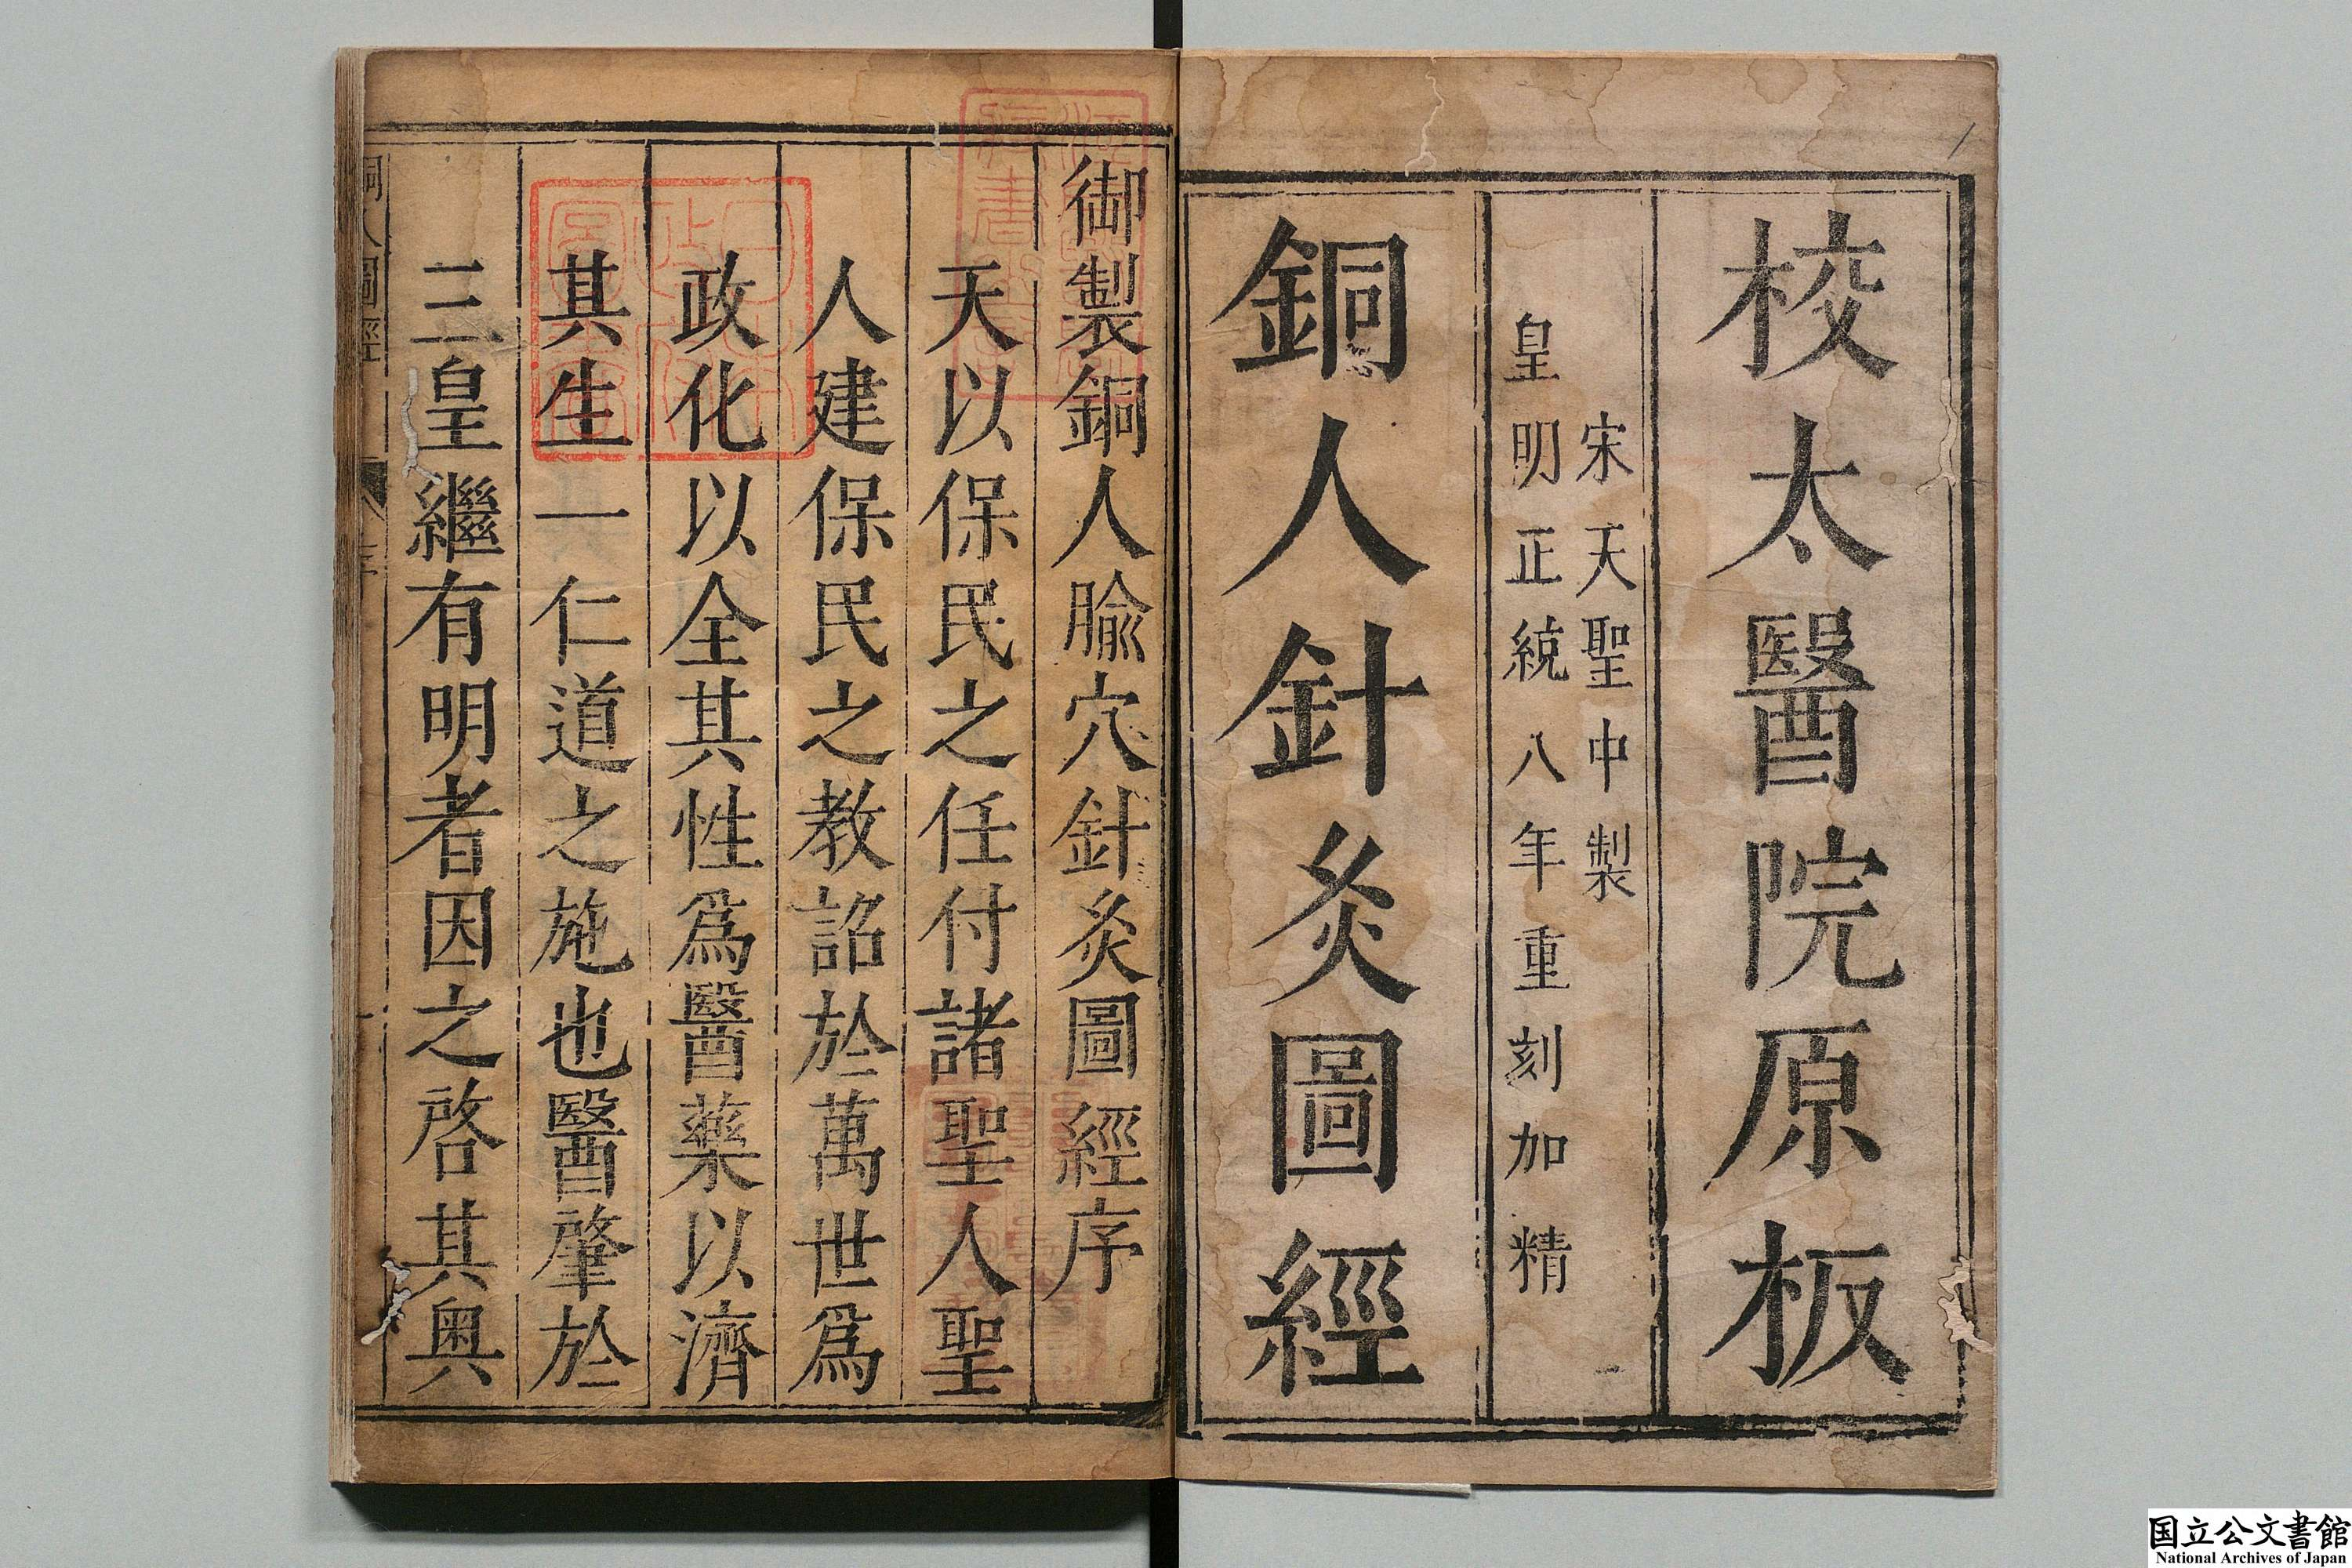 校太醫院原板
宋天聖中製
皇明正統八年重刻加精
銅人針灸圖經
御製銅人腧穴針灸圖經序
天以保民之任付諸聖人聖
人建保民之教詔於萬世爲
政化以全其性爲醫藥以濟
其生一仁道之施也醫肇於
三皇繼有明者因之啓其奥
国立公文書館
National Archives of Japan